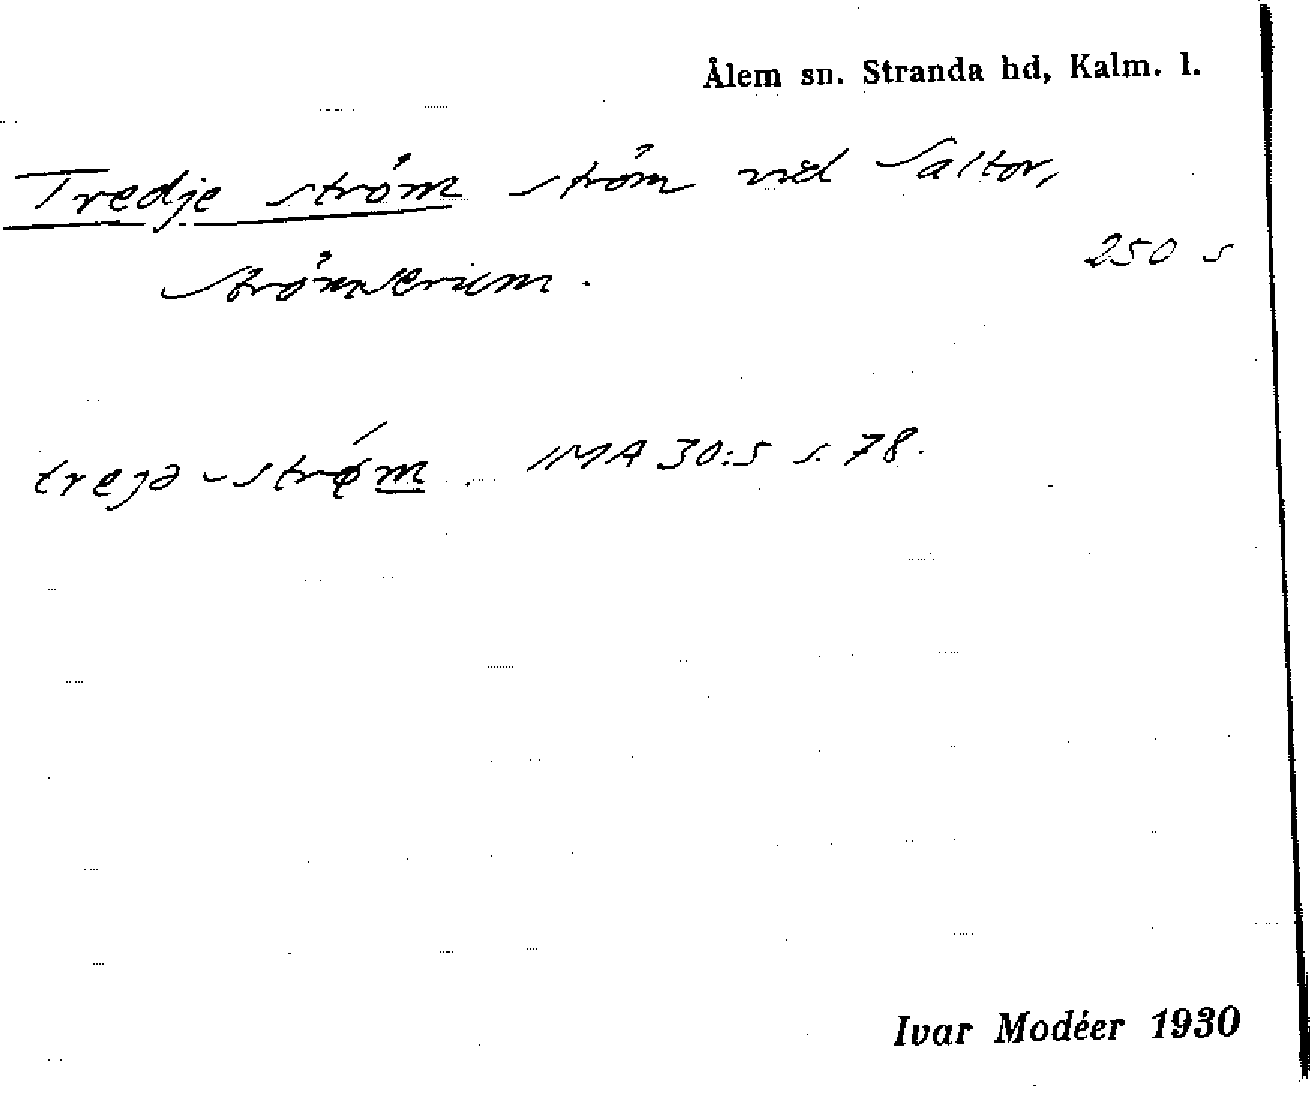 Ålem sn. Stranda hd, Kalm. l.
Tredje ström ström vid Saltor,
250 s
treja-strøm. IMA 30:5 s. 78.
Ivar Modéer 1930